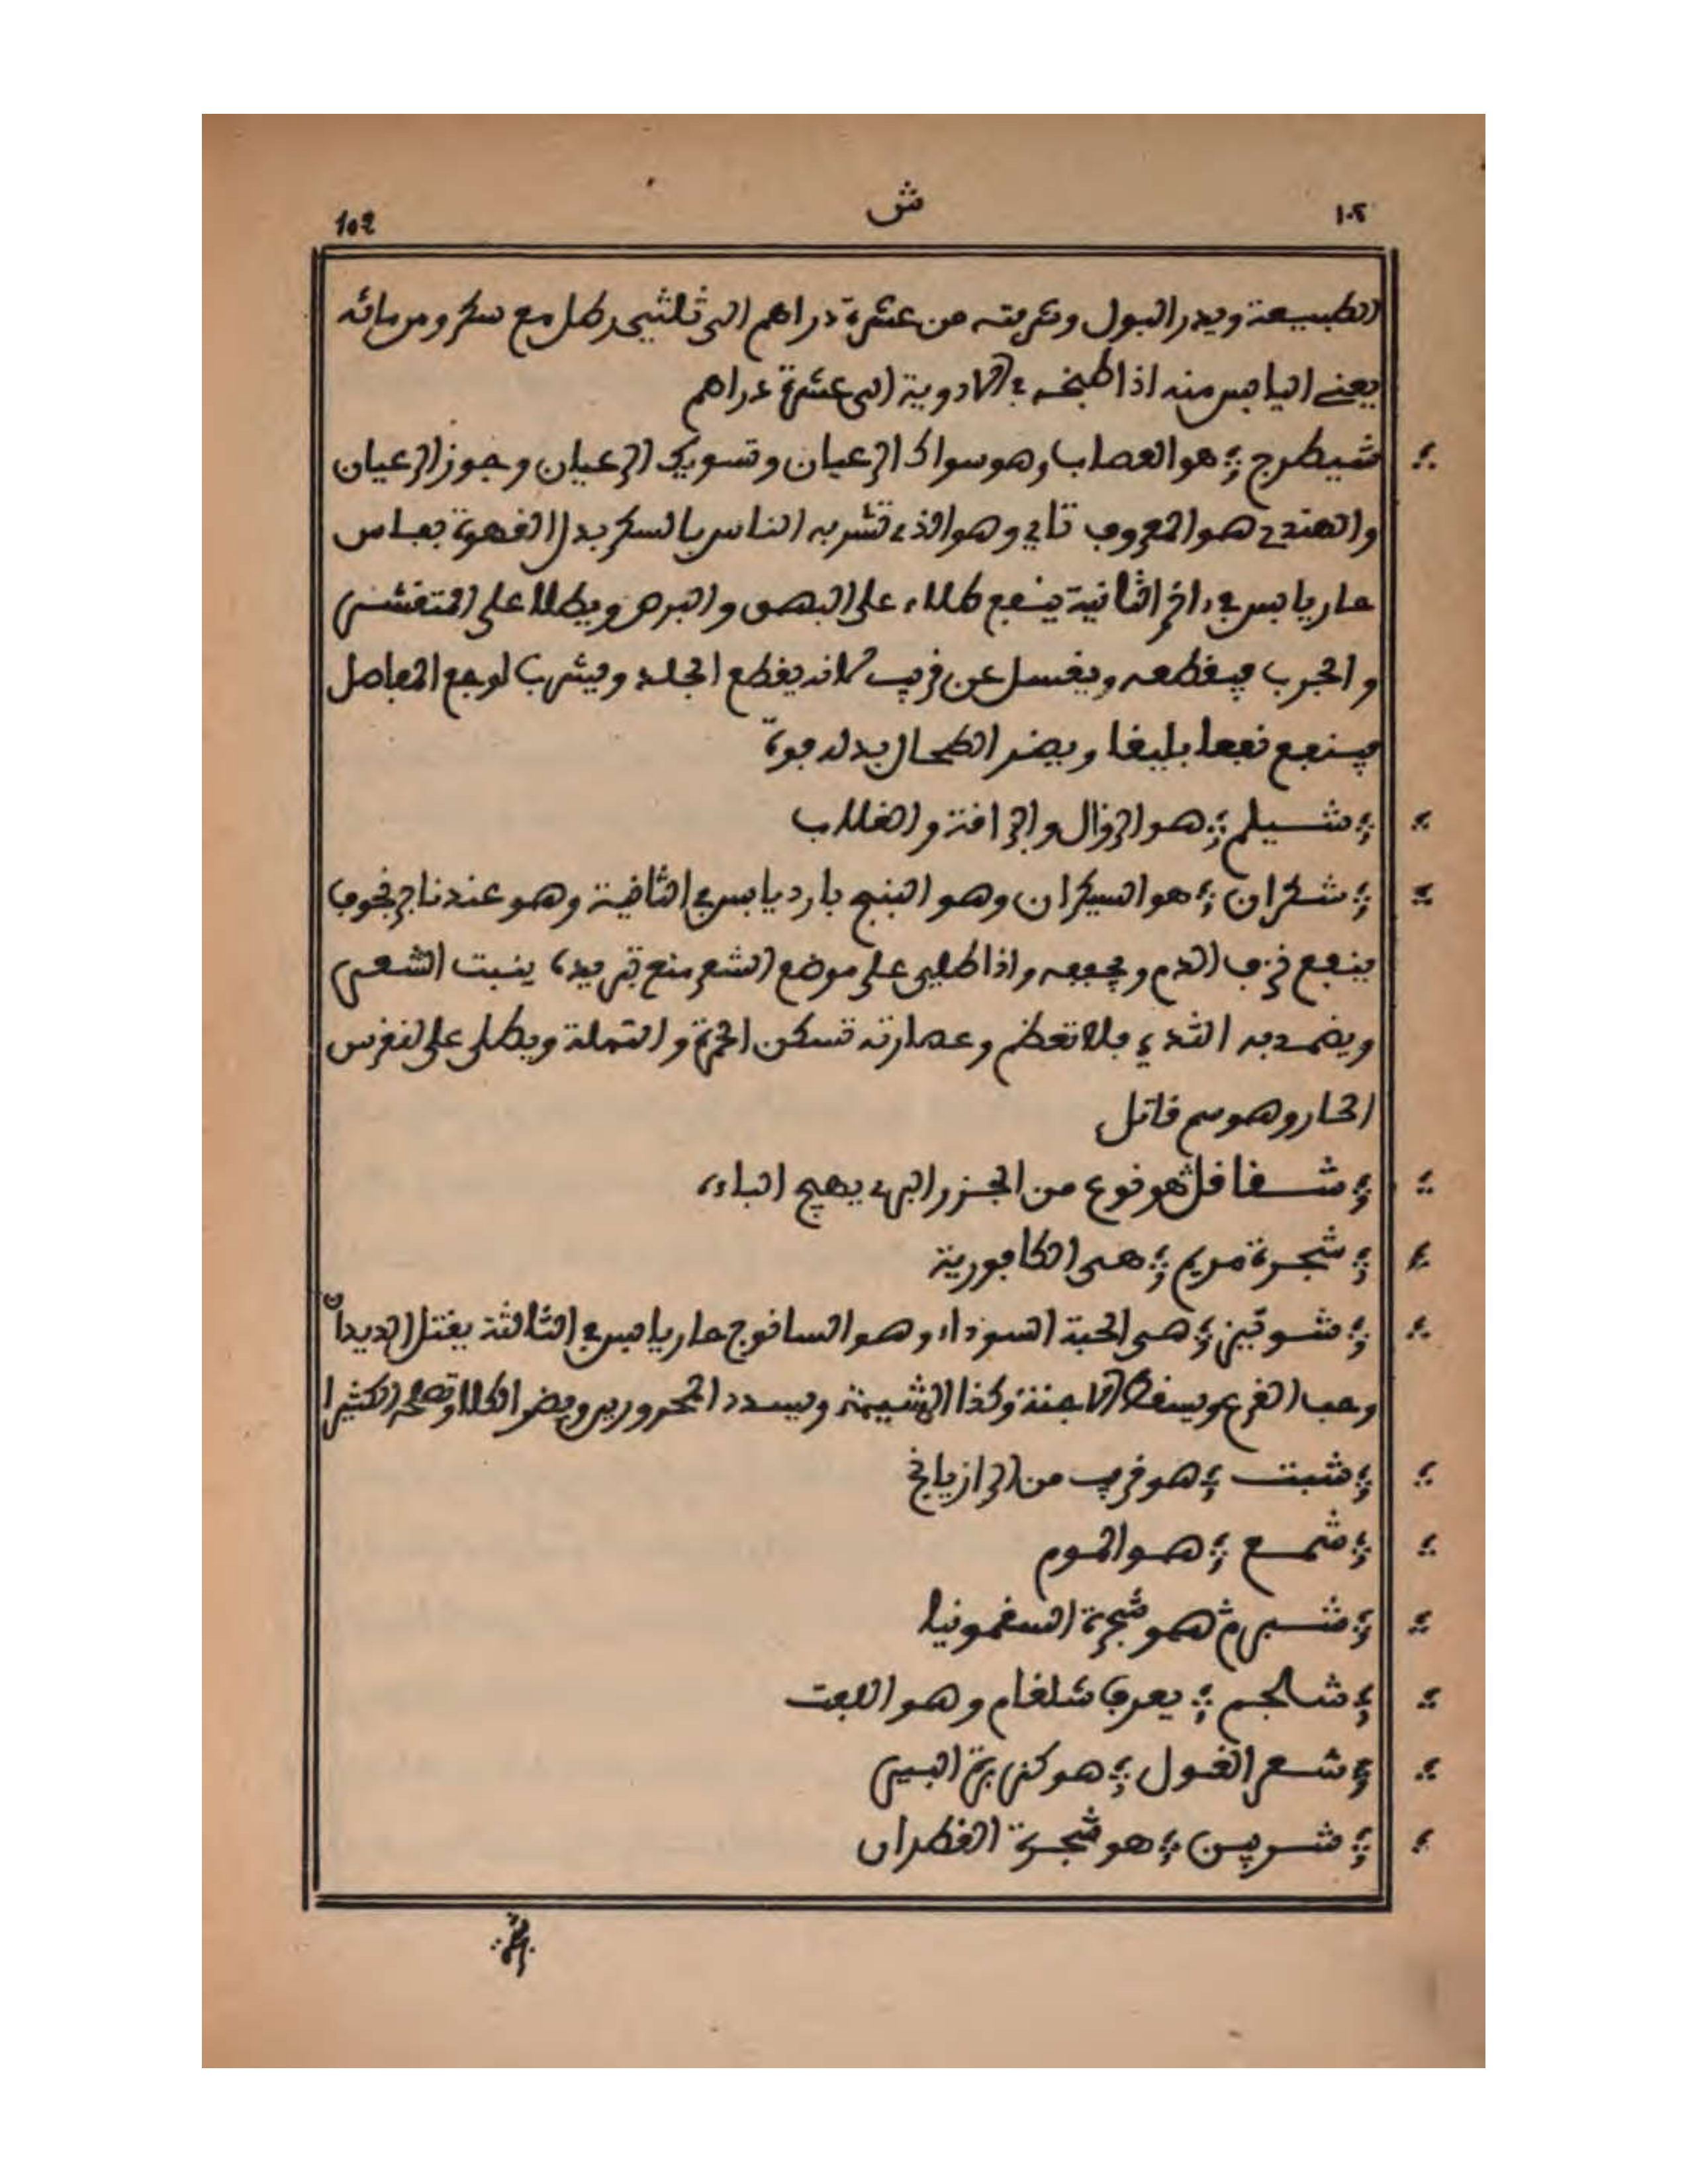 ١٠٢ ش 102
الطبيعة ويدر البول وشربته من عشرة دراهم الى ثلثين رطل مع سكر ومن مائه
يعني اليابس منه اذا طبخه في الادوية الى عشرة دراهم
شيطرج هو العصاب وهو سواك الرعيان وتسويك الرعيان وجوز الرعيان
والهندي هو المعروف تاي وهو الذي تشربه الناس بالسكر بدل القهوة بفاس
حار يابس في اخر الثانية ينفع طلاء على البهق والبرص ويطلا على المتقشر
والجرب فيقطعه ويغسل عن قريب لانه يقطع الجلد ويشرب لوجع المفاصل
فينفع نفعا بليغا ويضر الطحال بدله فوة
شيلم هو الزوال و والغلاب
شكران هو السيكران وهو البنج بارد يابس في الثانية وهو عندنا
ينفع نزف الدم ويجففه واذا طلي على موضع الشعر منع تربده ينبت الشعر
ويضمد به الثدي فلا تعظم وعصارته تسكن الحمرة والنملة ويطلى على النقرس
الحار وهو سم قاتل
شقاقل هو نوع من الجزر البري يهيج الباءة
شجرة مريم هي الكافورية
شونيز هي الحبة السوداء وهو السانوج حار يابس في الثالثة يقتل الديدان
وحب القرع ويسقط الاجنة وكذا المشيمة ويسدد المحرورين ويضر الكلا وتصلحه الكثيرا
شبت هو قريب من الرازيانج
شمع هو الموم
شبرم هو شجرة السقمونيا
شالجم يعرف شلغام وهو اللفت
شعر الغول هو كزبرة البير
شربين هو شجرة القطران